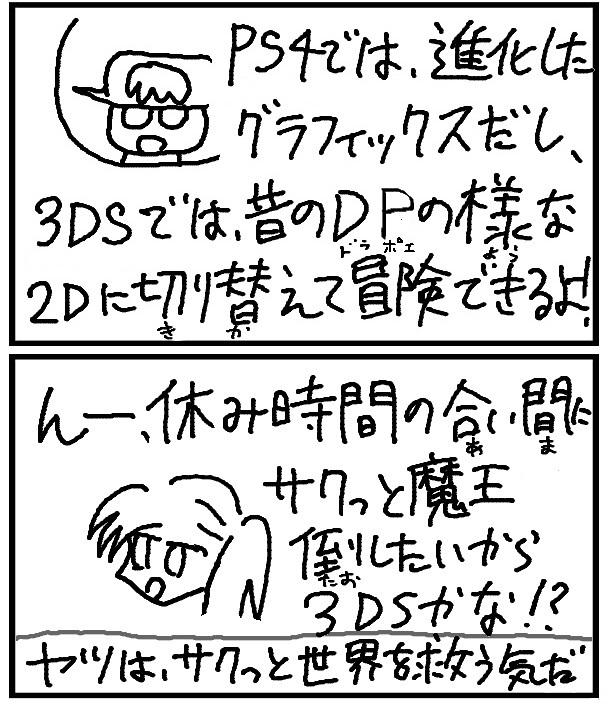 PS4では、進化した
グラフィックスだし、
3DSでは、昔のDPの様な
ドラ ポエ よう
2Dに切り替えて冒険できるよ!
き か
んー、休み時間の合い間に
あ ま
サクっと魔王
倒したいから
たお
3DSかな!?
ヤツは、サクっと世界を救う気だ